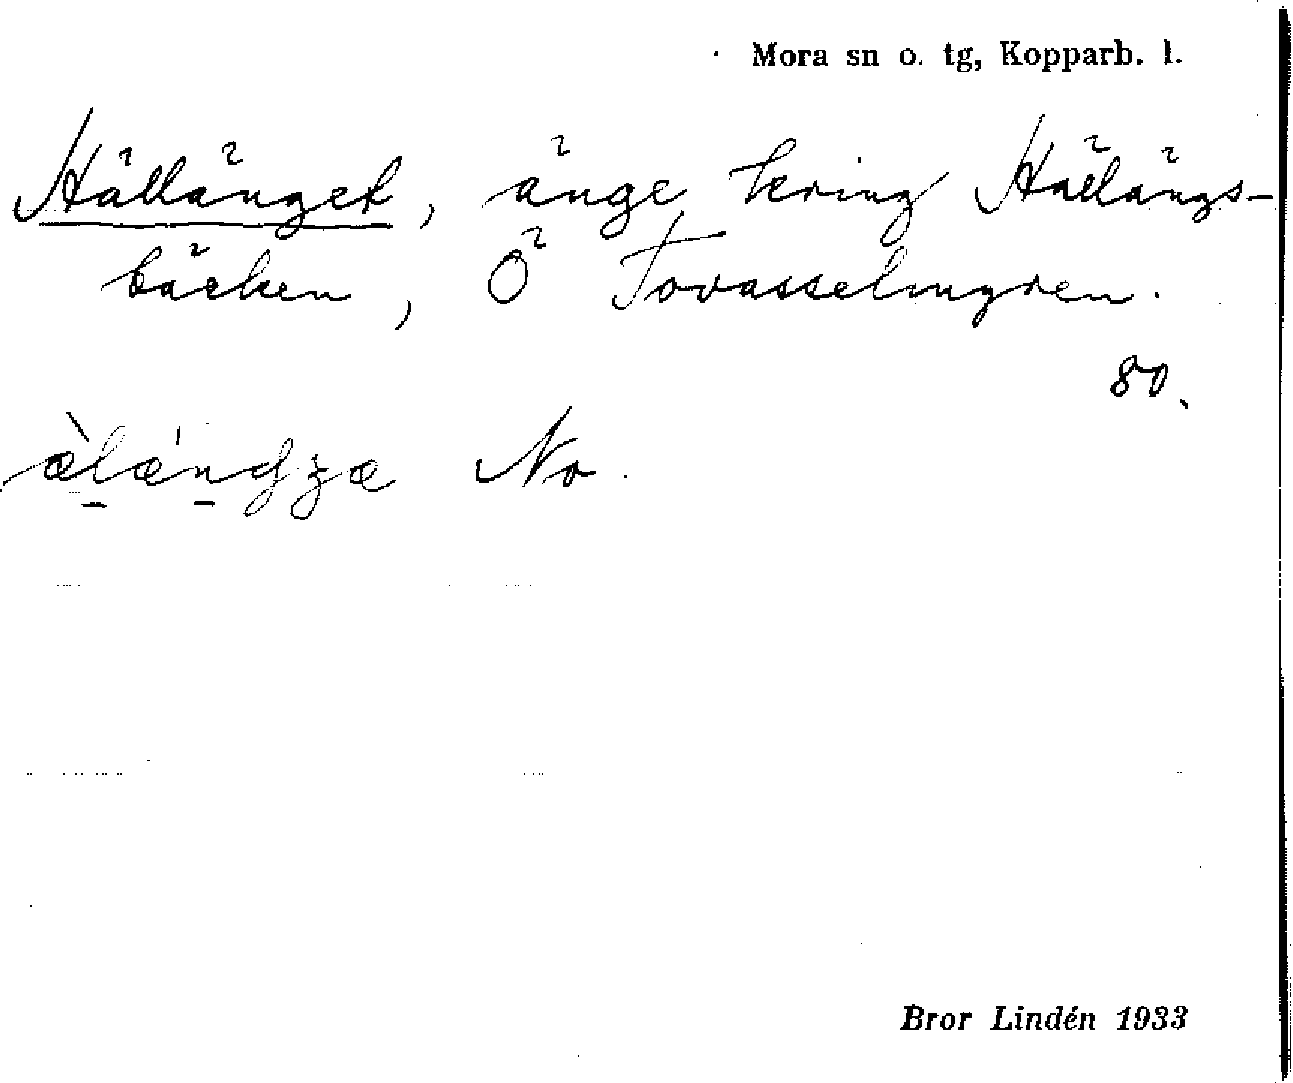 Mora sn o. tg, Kopparb. l.
Hällänget, änge kring Hällängs-
bäcken, Ö Tovasselmyren.
80.
No.
Bror Lindén 1933